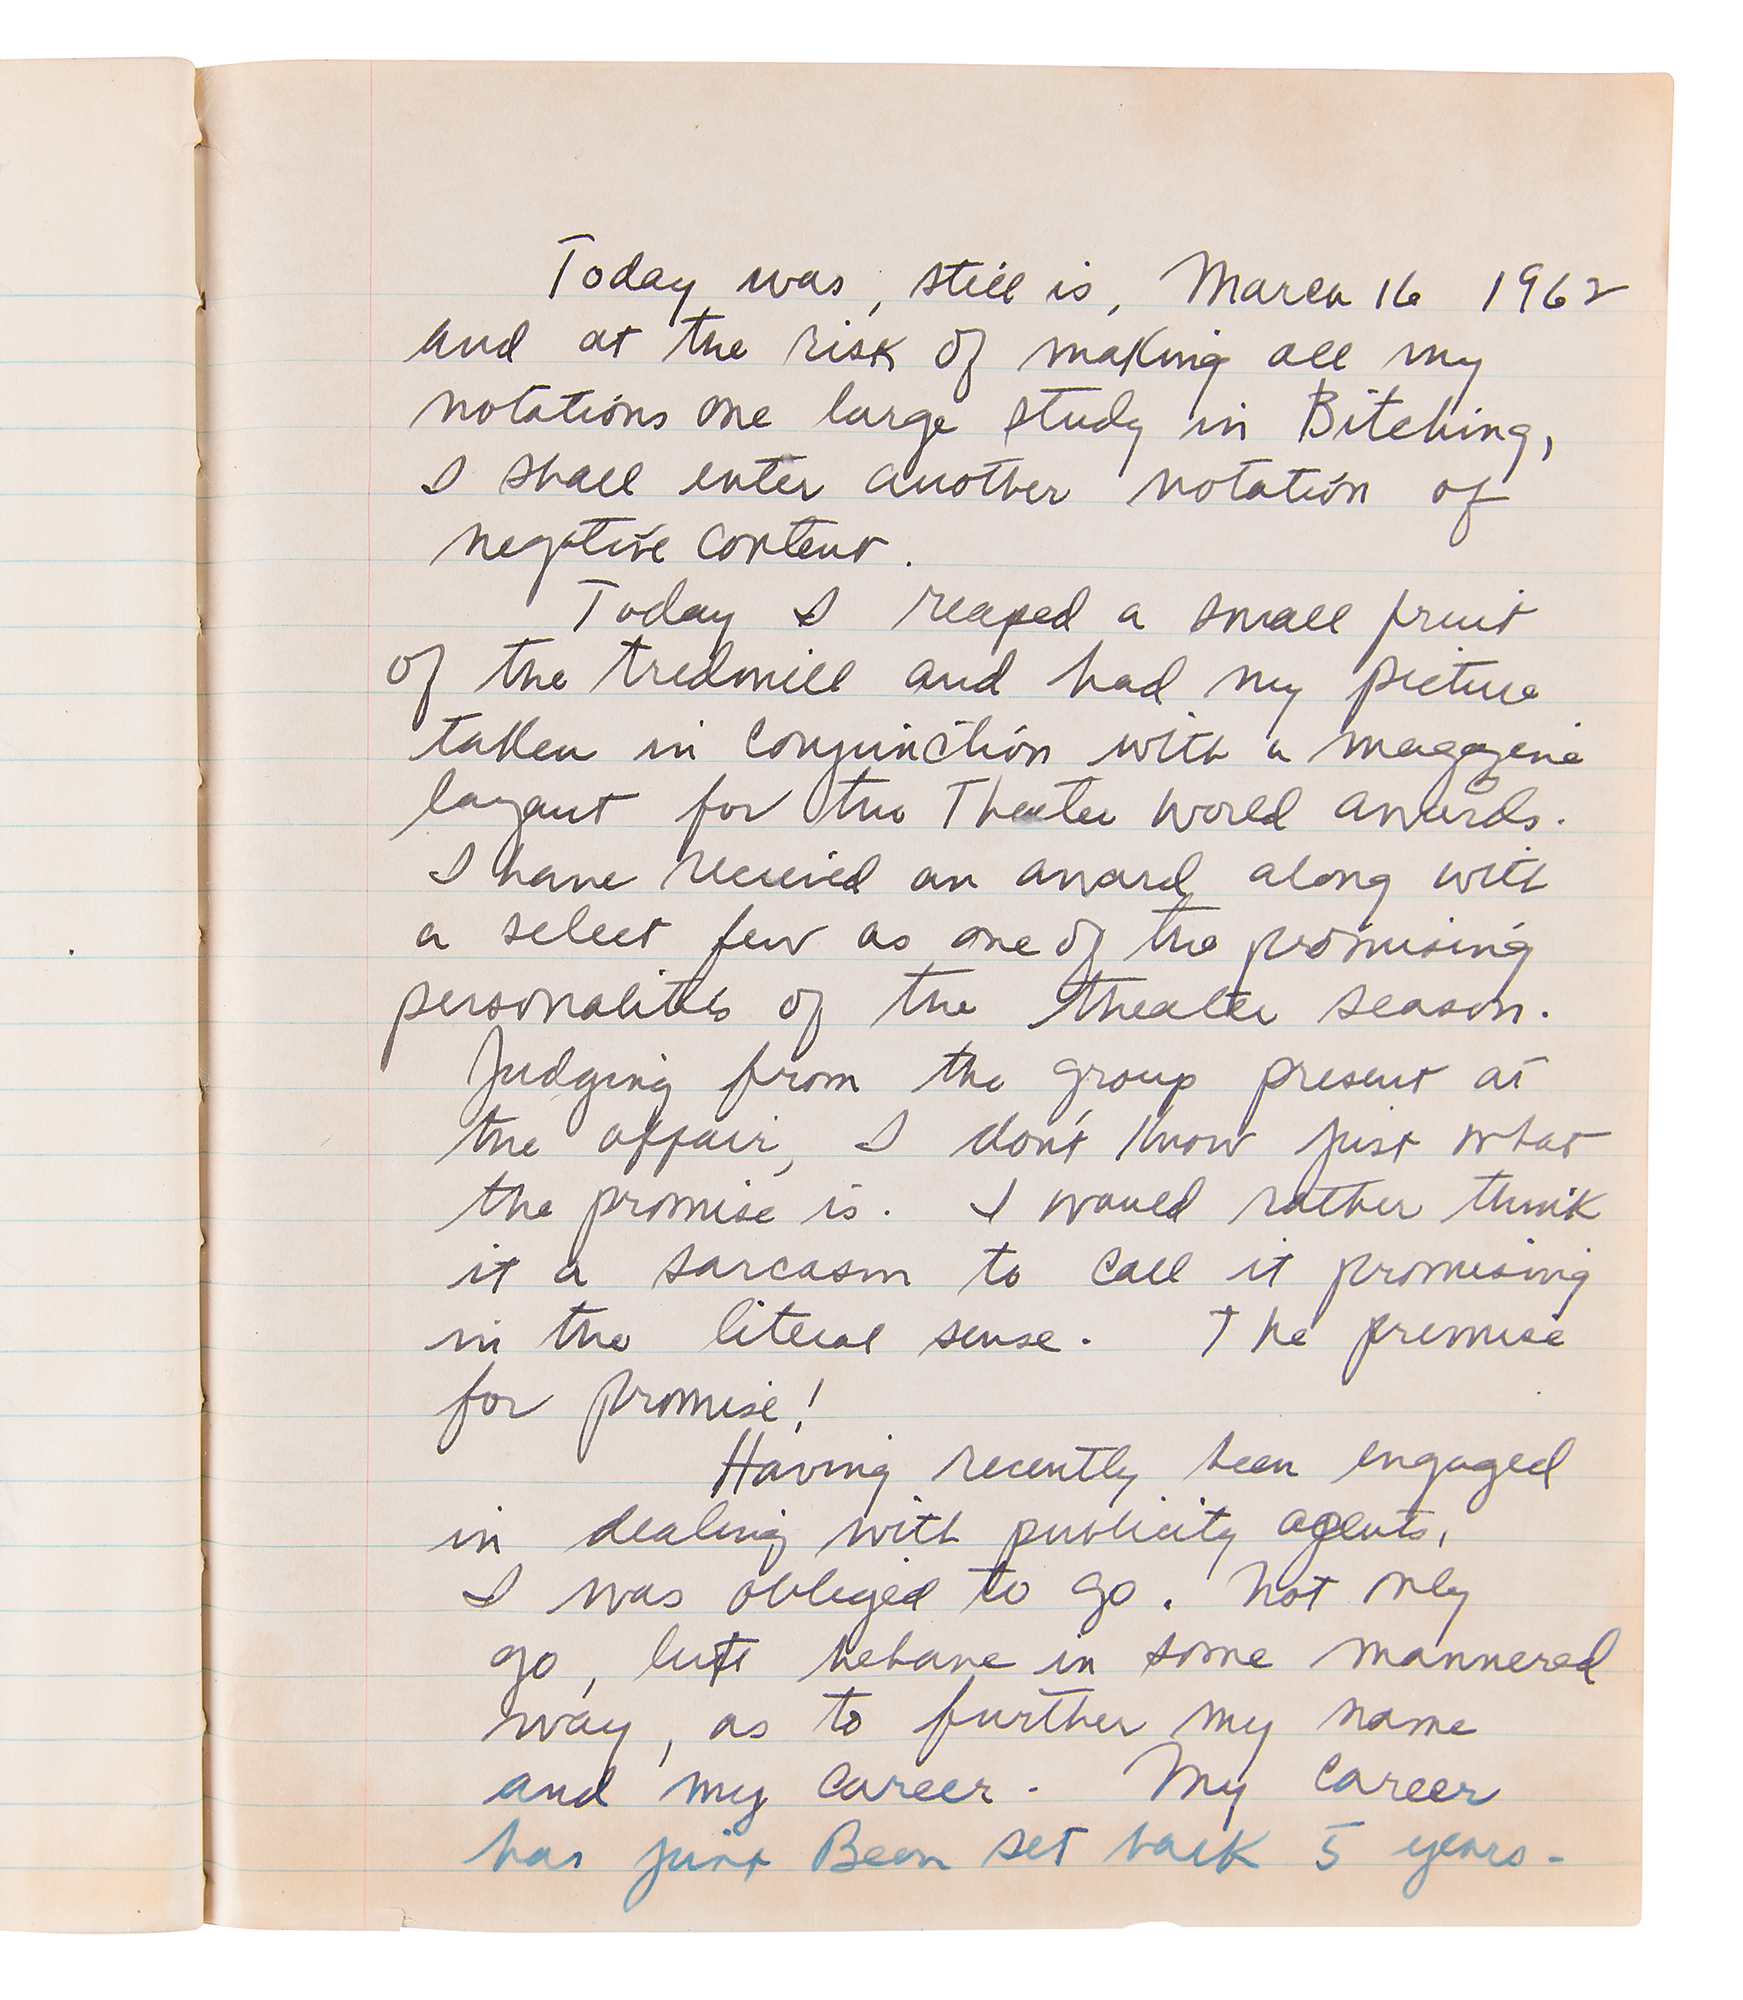 Today was, still is, March 16 1962
and at the risk of making all my
notations one large study in Bitching,
I shall enter another notation of
negative content.
Today I reaped a small fruit
of the tredmill and had my picture
taken in conjunction with a magazine
layout for the Theater World awards.
I have received an award along with
a select few as one of the promising
personalities of the theater season.
Judging from the group present at
the affair, I don't know just what
the promise is. I would rather think
it a sarcasm to call it promising
in the literal sense. The premise
for promise!
Having recently been engaged
in dealing with publicity agents,
I was obliged to go. Not only
go, but behave in some mannered
way, as to further my name
and my career. My career
has just Been set back 5 years-